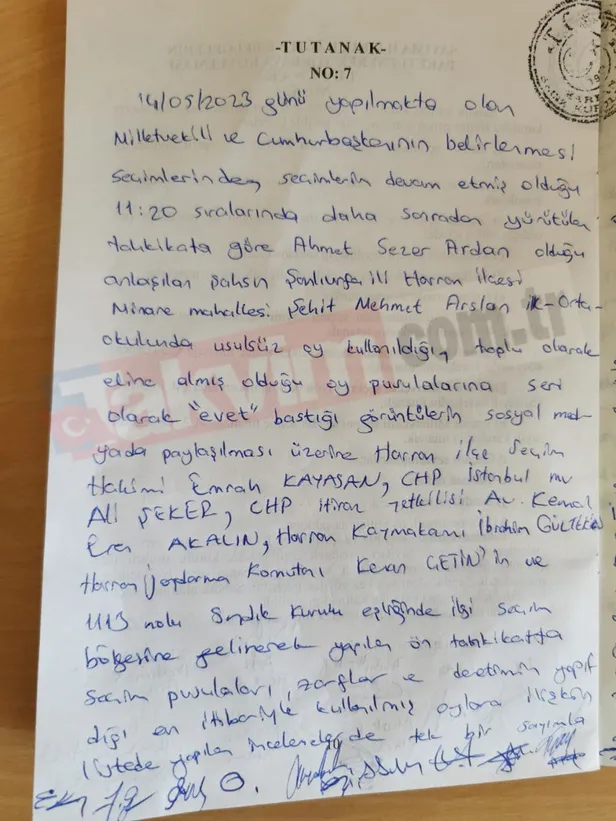 -TUTANAK-
NO: 7
14/05/2023 günü yapılmakta olan
Milletvekili ve Cumhurbaşkanının belirlenmesi
seçimlerinden, seçimlerin devam etmiş olduğu
11:20 sıralarında daha sonradan yürütülen
tahkikata göre Ahmet Sezer Ardan olduğu
anlaşılan şahsın Şanlıurfa ili Harran ilçesi
Minare mahallesi Şehit Mehmet Arslan ilk-Orta-
okulunda usulsüz oy kullanıldığı, toplu olarak
eline almış olduğu oy pusulalarına seri
olarak "evet" bastığı görüntülerin sosyal med-
yada paylaşılması üzerine Harran ilçe Seçim
Hakimi Emrah KAYASAN, CHP İstanbul mv
Ali ŞEKER, CHP itiraz yetkilisi Av. Kemal
Eren AKALIN, Harran Kaymakamı İbrahim GÜLTEKİN
Harran Jandarma Komutanı Kenan ÇETİN'in ve
1113 nolu Sandık Kurulu eşliğinde ilgi seçim
bölgesine gelinerek yapılan ön tahkikatta
seçim pusulaları, zarflar ve denetimin yapıl-
dığı an itibariyle kullanılmış oylara ilişkin
listede yapılan incelemelerde tek bir sayımla
10
Takvim.com.tr